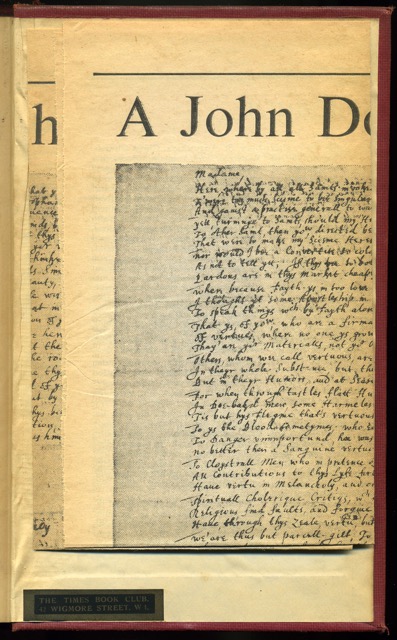 h
A John Do
Madame,
Here where by all, all Saints invoked
T'were too much Scisme to bee singular
And gainst a practise generall to war
Yett turninge to Saints, should my Hu
To other Saint, then you directed be
That were to make my Scisme Heres
nor would I bee a Convertite so cold
As not to tell yt; If thys bee to bold
Pardons are in thys Market cheap
when because Fayth ys in too low
I thought yt some Apostleship in
To speak things wch by Fayth alon
That ys, of you, who are a firma
Of vertues, where no one ys grow
Thay'are your Materials, not your O
Others, whom wee call vertuous, are
In theyr whole Substance, but, the
But in theyr Humors, and at Seaso
For when through tastles flatt Hu
In Dow-bakd men some Harmeles
Tis but hys flegme that's vertuous
So ys the Blood sometymes; who e
To Danger unimportund, hee was
no better then a Sanguine vertuo
So Cloystrall Men who in pretence o
All Contributions to thys Lyfe for
Haue vertu in Melancholy, and o
Spirituall Cholerique Critiqs, wch
Religions find faults, and Forgive
Haue, through thys Zeale, vertu, but
we'are thus but parcell-gilt; To
THE TIMES BOOK CLUB,
42 WIGMORE STREET, W.1.